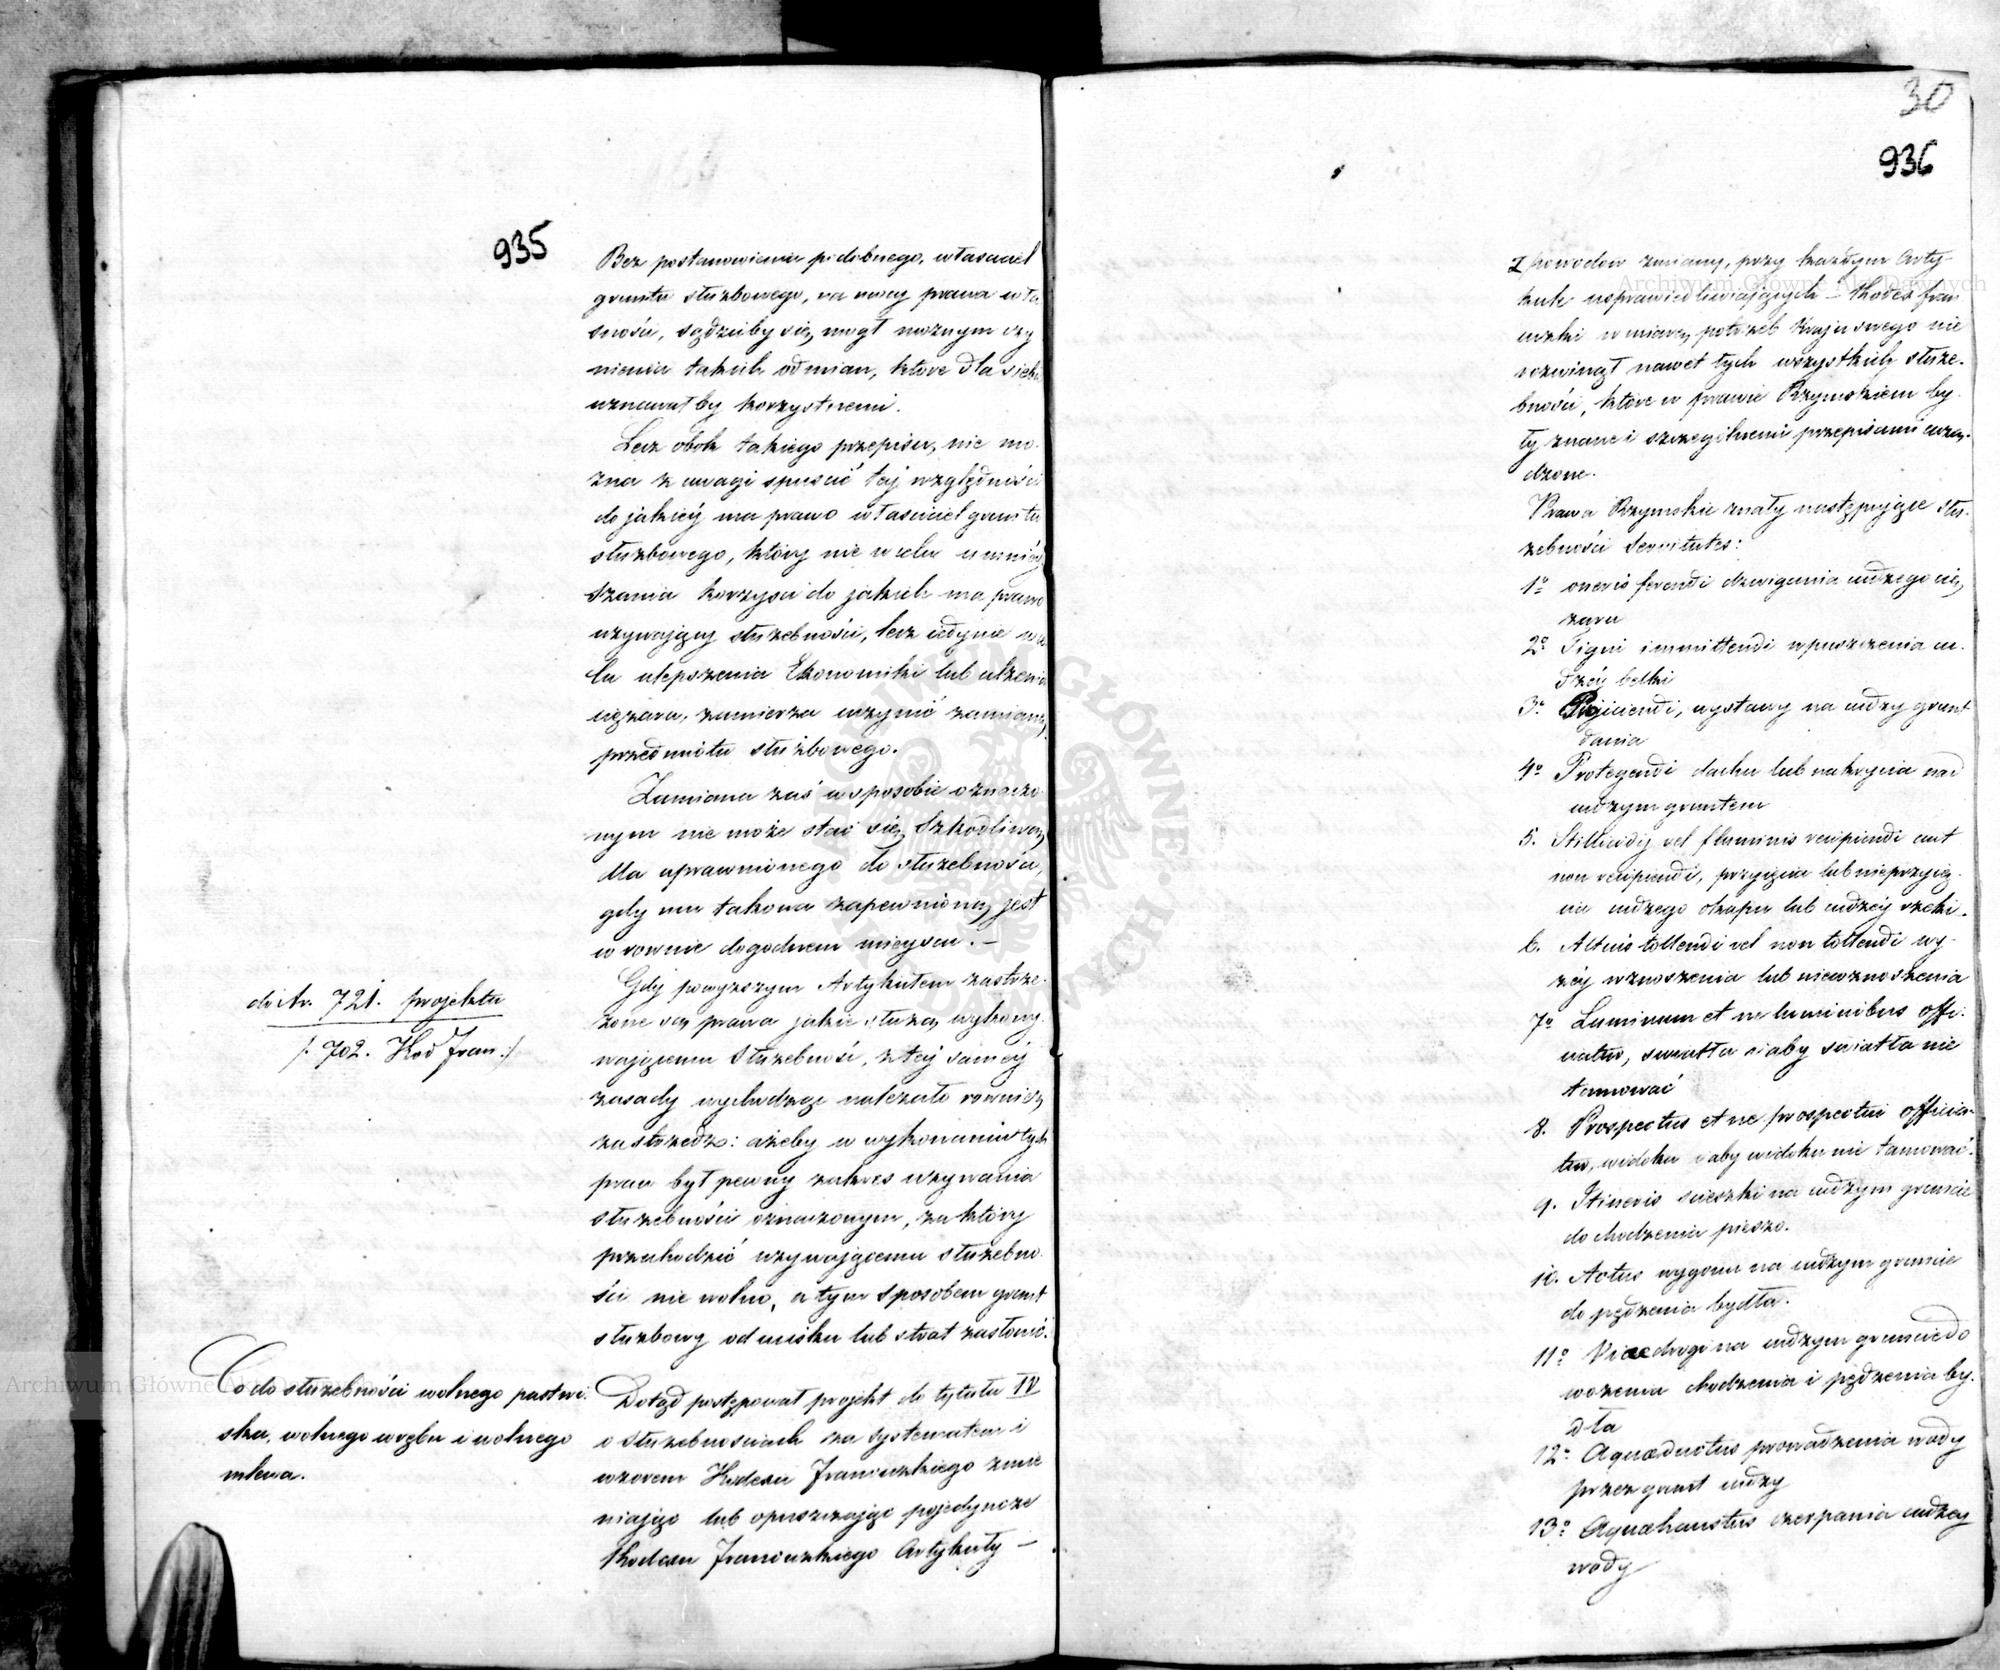 935
Bez postanowienia podobnego, własciciel
gruntu służbowego, na mocy prawa wła
sności, sądziłby się mógł możnym czy
nienia takich odmian, które dla siebie
uznawałby korzystnemi.
Lecz obok takiego przepisu, nie mo-
żna z uwagi spuścić tej względności
do jakiéy ma prawo własciciel gruntu
służbowego, który nie w celu umniéy
szania korzyści do jakich ma prawo
używający służebności, lecz iedynie w ce
lu ulepszenia Ekonomiki lub ulżenia
ciężaru, zamierza uczynić zamianę
przedmiotu służbowego.
Zamiana zaś w sposobie oznaczo
nym nie może stać się szkodliwą
dla uprawnionego do służebności,
gdy mu takowa zapewnioną jest
w równie dogodnem mieyscu. –
do Ar. 721. projektu
/: 702. Kod Fran :/
Gdy powyższym Artykułem zastrze-
żone są prawa jakie służą wykony-
wającemu służebność, z tej saméy
zasady wychodząc należało również
zastrzedz: ażeby w wykonaniu tych
praw był pewny zakres używania
służebności oznaczonym, za który
przechodzić używającemu służebno-
ści nie wolno, a tym sposobem grunt
służbowy od ucisku lub strat zasłonić.
Co do służebności wolnego pastwi-
ska, wolnego wrębu i wolnego
mlewa.
Dotąd postępował projekt do tytułu IV
o służebnosciach za systematem i
wzorem Kodexu Francuzkiego zmie
niając lub opuszczając pojedyncze
Kodexu Francuzkiego Artykuły –
30
936
z powodów zmiany, przy każdym Arty-
kule usprawiedliwiających – Kodex fran
cuzki w miarę potrzeb Kraju swego nie
rozwinął nawet tych wszystkich służe-
bności, które w prawie Rzymskiem by-
ły znane i szczególnemi przepisami urzą-
dzone.
Prawa Rzymskie znały następujące słu-
żebności Servitutes:
1º oneris ferendi dzwigania cudzego cię
żaru
2º Tigni immittendi wpuszczenia cu-
dzéy belki
3º Projiciendi, wystawy na cudzy grunt
dania
4º Protegendi dachu lub nakrycia nad
cudzym gruntem
5. Stillicidij vel fluminis recipiendi aut
non recipiendi, przyięcia lub nieprzyię-
cia cudzego okapu lub cudzéy rzeki.
6. Altius tollendi vel non tollendi wy-
żéy wznoszenia lub niewznoszenia
7º Luminum et ne luminibus offi-
ciatur, swiatła i aby swiatła nie
tamować
8. Prospectus et ne prospectui officia-
tur, widoku i aby widoku nie tamować.
9. Itineris scieszki na cudzym gruncie
do chodzenia pieszo.
10. Actus wygonu na cudzym gruncie
do pędzenia bydła.
11º Viae drogi na cudzym gruncie do
wożenia chodzenia i pędzenia by-
dła
12º Aquæductus prowadzenia wody
przez grunt cudzy
13º Aquæhaustus czerpania cudzey
wody